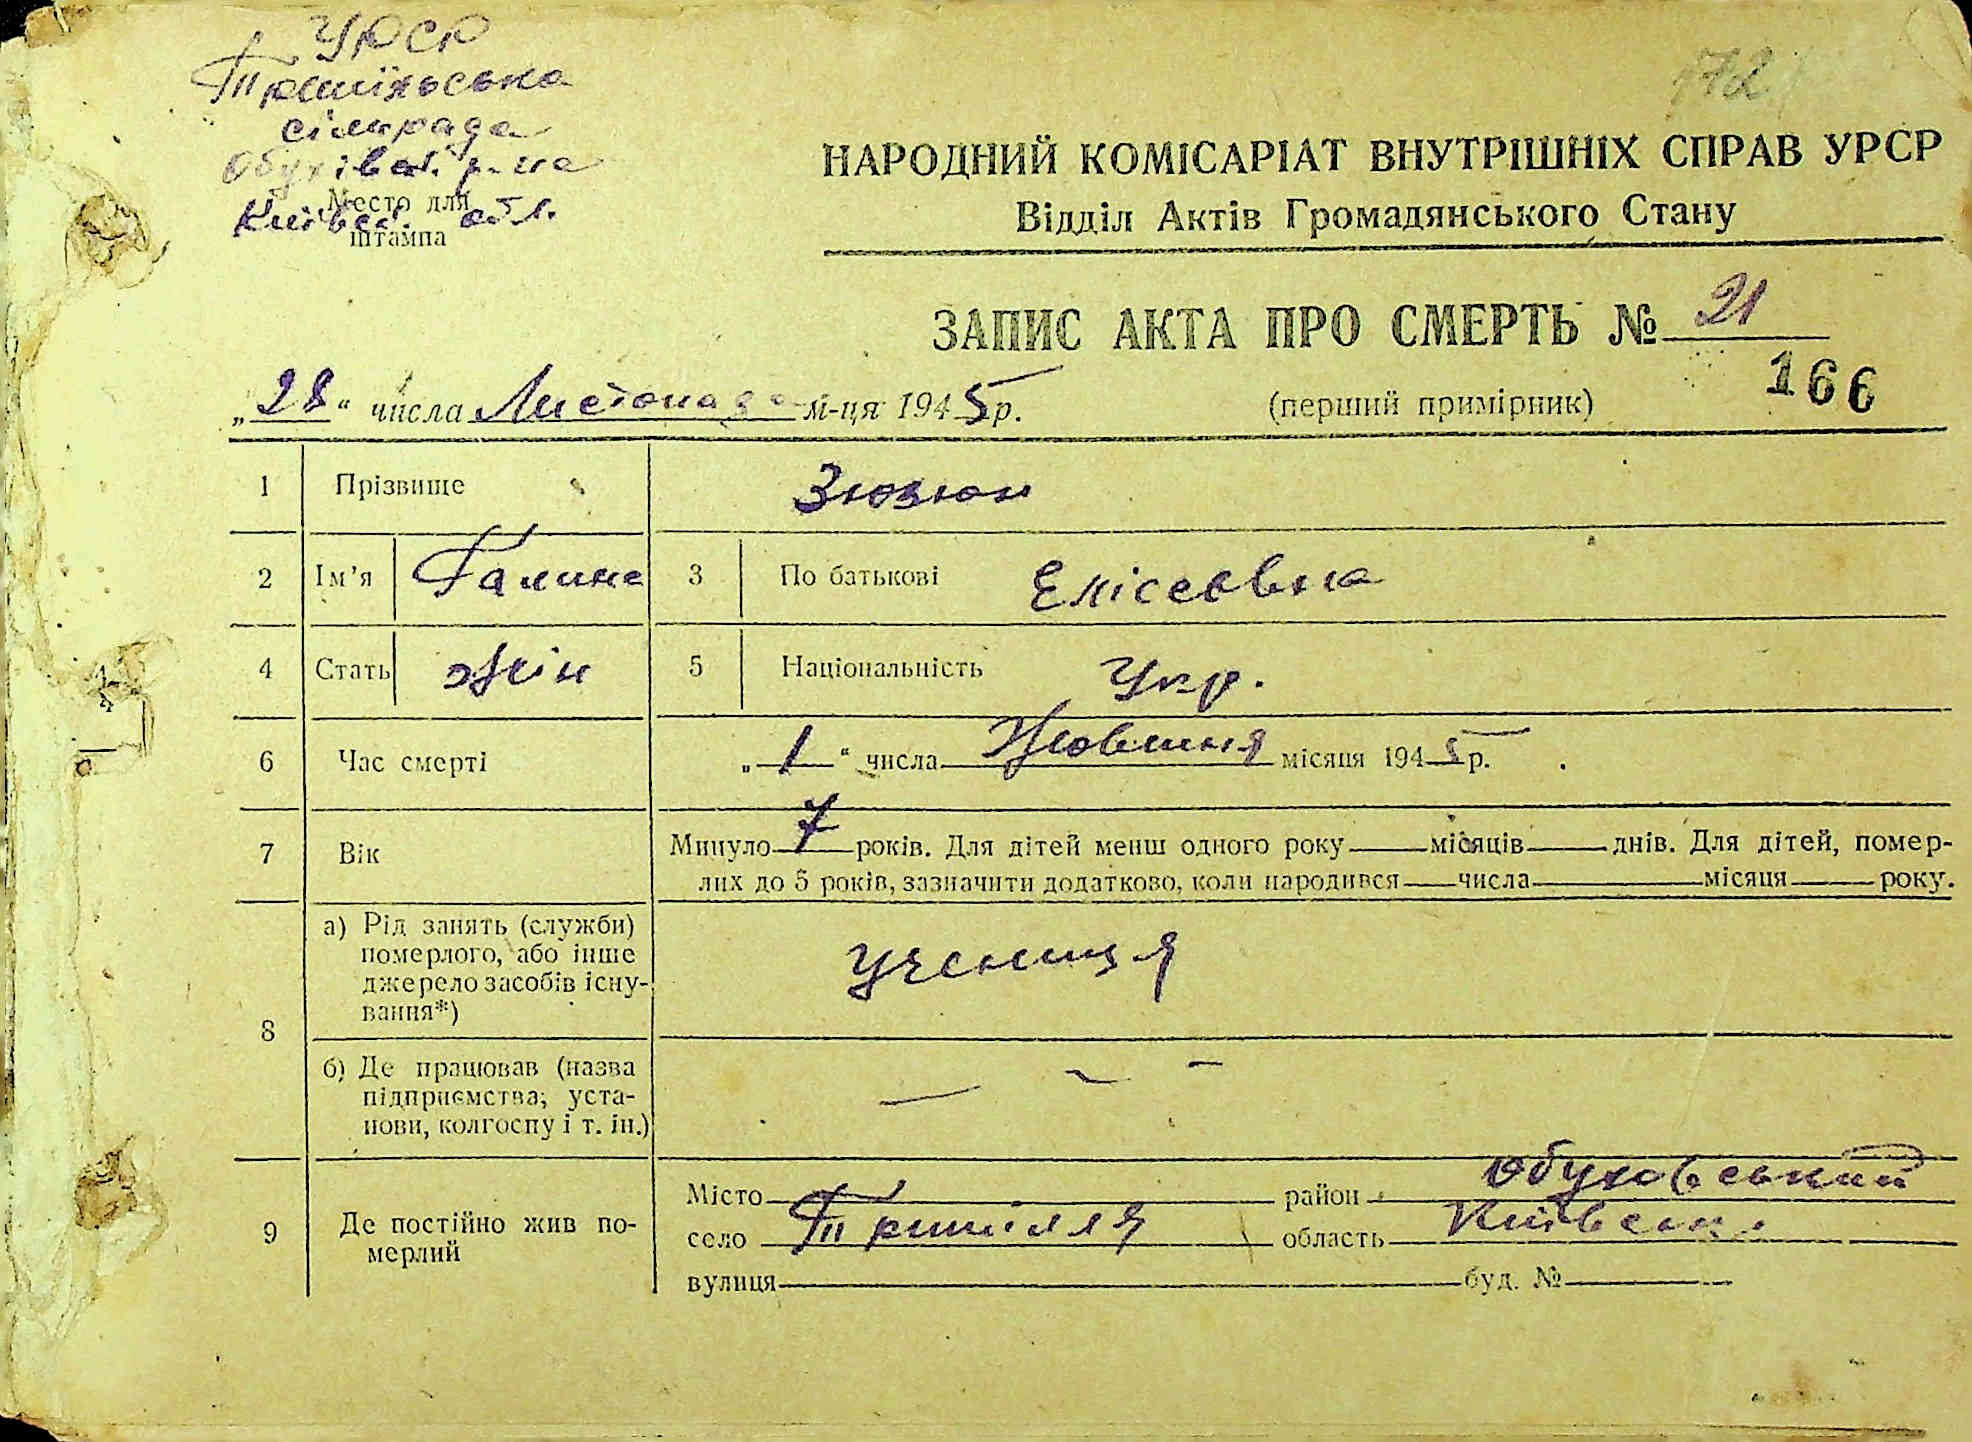 УРСР
172
Трипільська
сільрада
Обухівськ. р-на
Київськ. обл.
Место для
штампа
НАРОДНИЙ КОМІСАРІАТ ВНУТРІШНІХ СПРАВ УРСР
Відділ Актів Громадянського Стану
ЗАПИС АКТА ПРО СМЕРТЬ № 21
166
„28“ числа Листопада м-ця 1945 р. (перший примірник)
1 Прізвище Зюзюн
2 Ім’я Галина 3 По батькові Елісеевна
4 Стать жін 5 Національність Укр.
6 Час смерті „1“ числа Жовтня місяця 1945 р.
7 Вік Минуло 7 років. Для дітей менш одного року місяців днів. Для дітей, помер-
лих до 5 років, зазначити додатково, коли народився числа місяця року.
8 а) Рід занять (служби)
померлого, або інше
джерело засобів існу-
вання*)
учениця
б) Де працював (назва
підприємства, уста-
нови, колгоспу і т. ін.)
— — —
9 Де постійно жив по-
мерлий
Місто район Обуховський
село Трипілля область Київськ.
вулиця буд. №